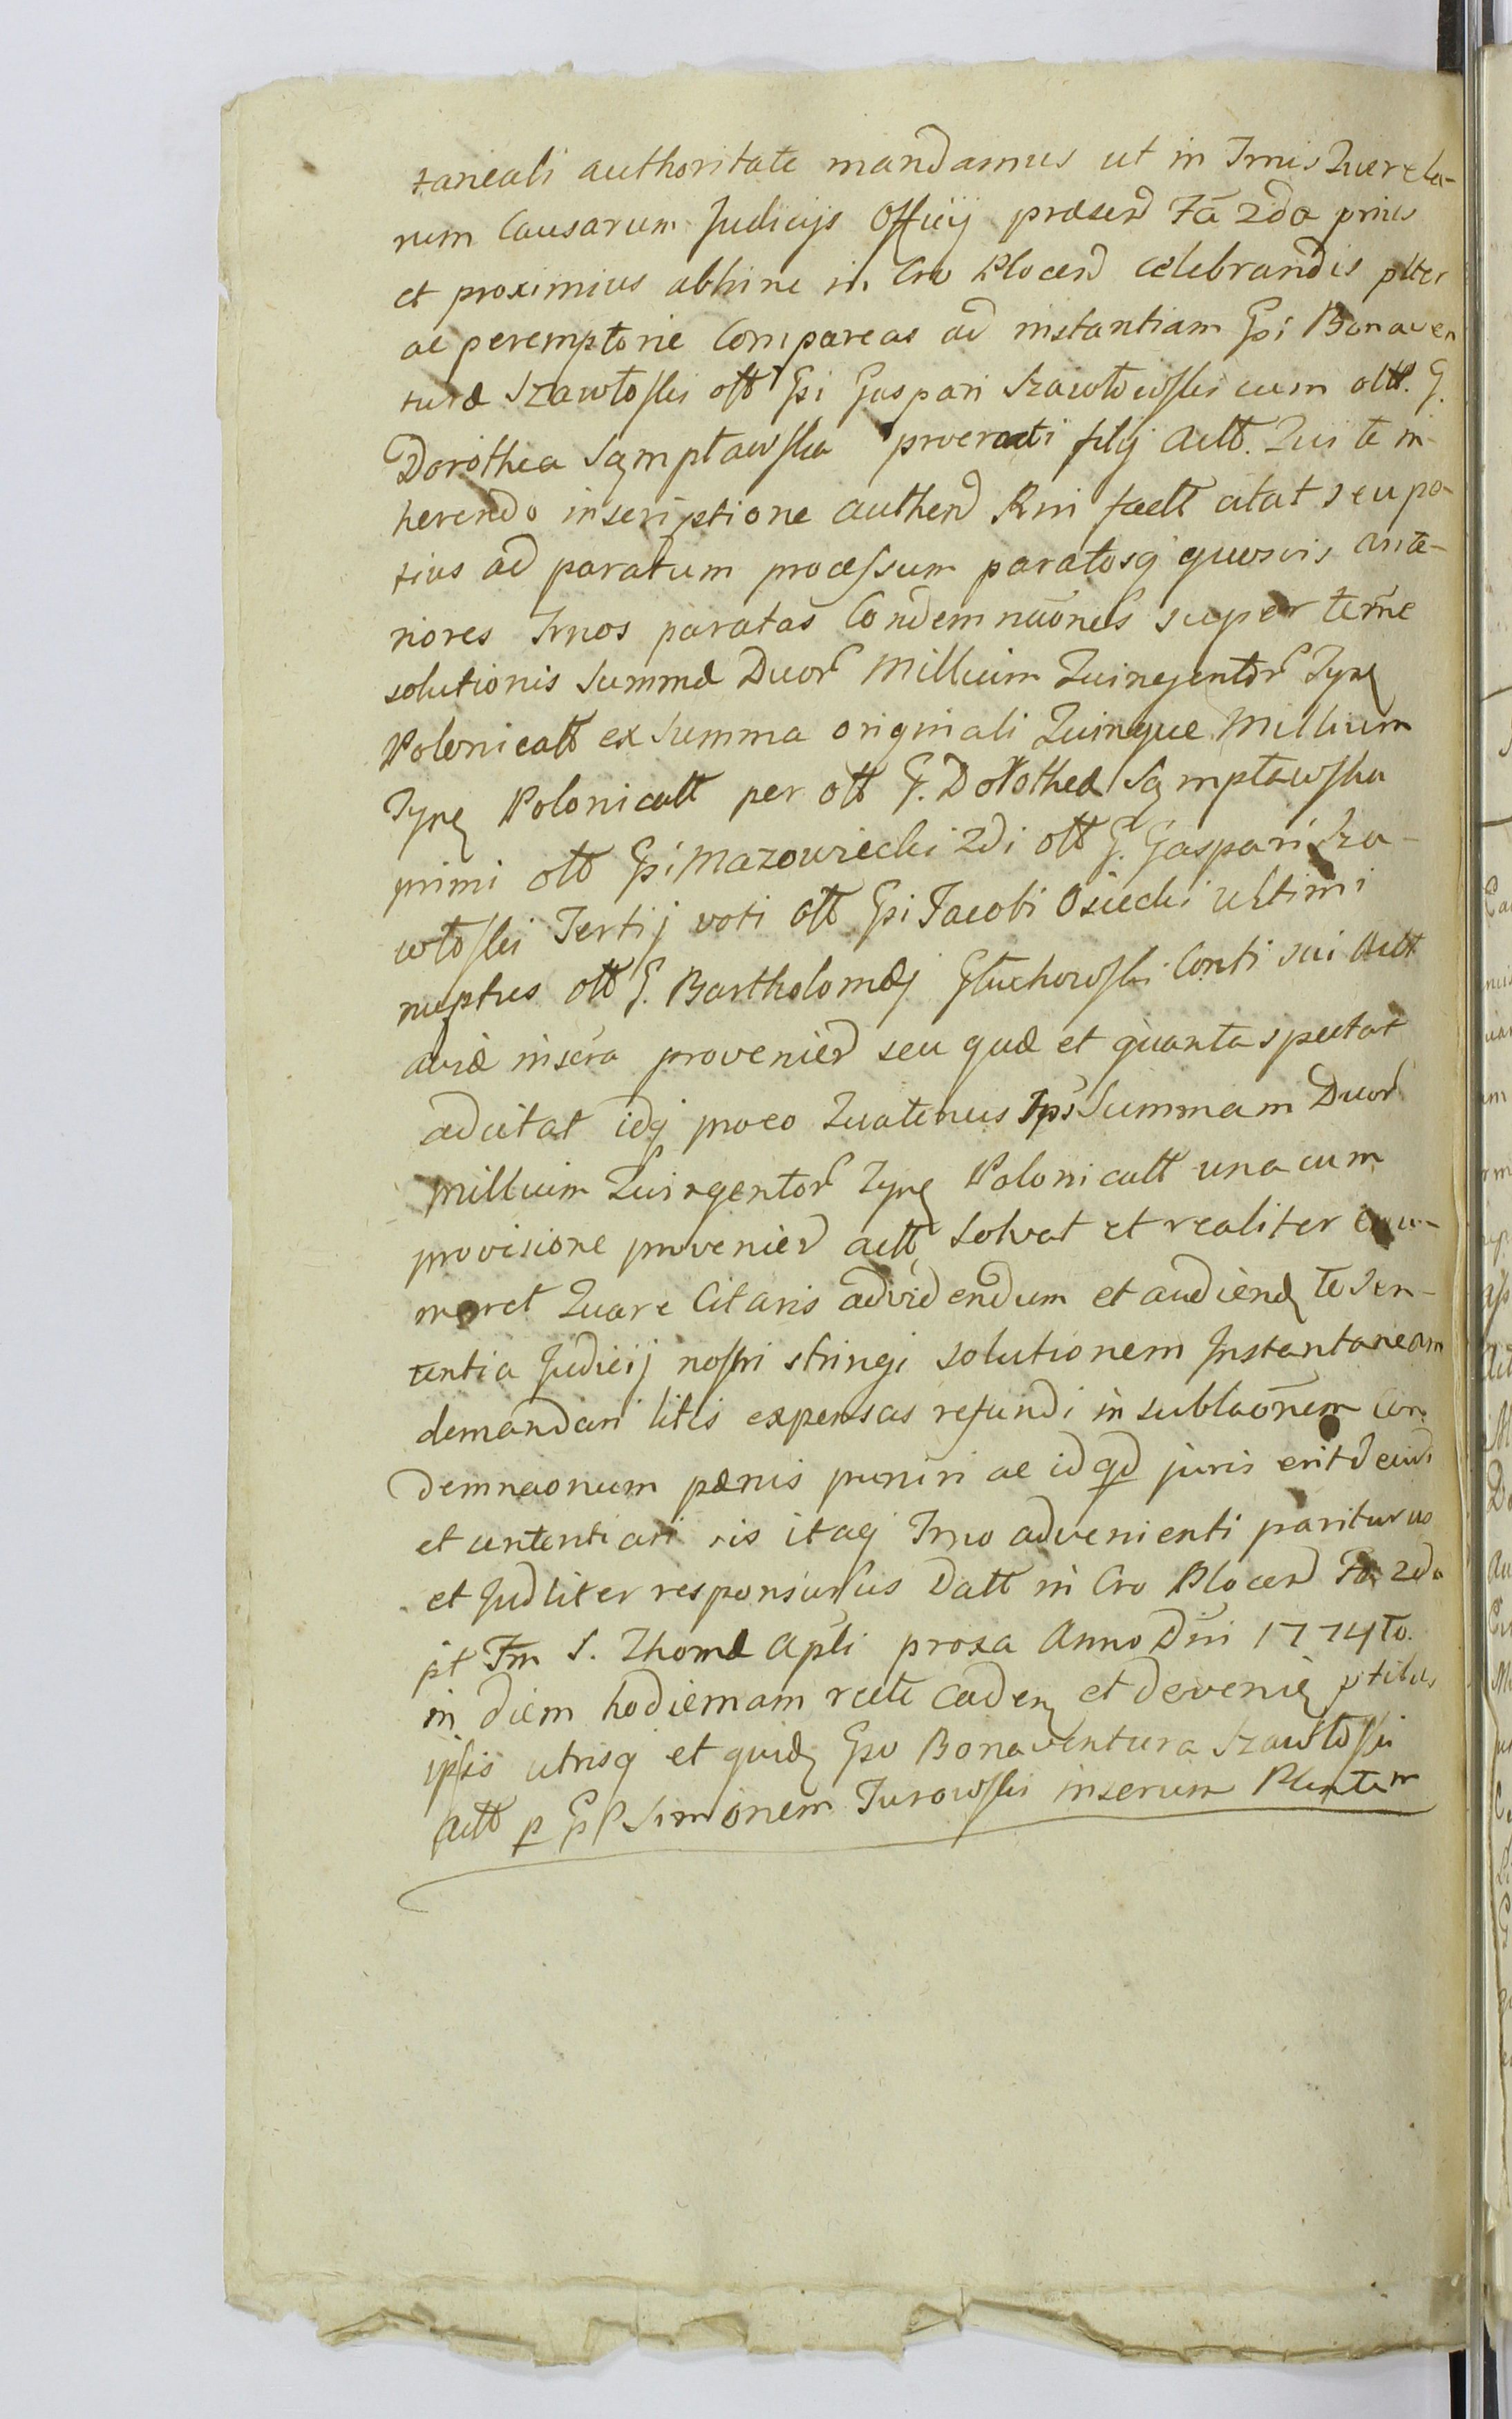 taneali authoritate mandamus ut in Tmis Querela-
rum Causarum Judicijs Officij præsend Fã 2da prius
et proximius abhinc in Cro Plocend celebrandis plter
ac peremptorie Compareas ad instantiam Gsi Bonaven
turæ Szawłoski olt Gsi Gaspari Szawłowski cum olt. G.
Dorothea Sąmpławska procreati filij Actt. Qui te in-
herendo inscriptione authend Rni factt citat seu po-
tius ad paratum processum paratosq quosvis ante-
riores Tmos paratas Condemnãones super
solutionis Summæ Duor Millium Quingentor Zyne
Polonicalt ex Summa originali Quinque Millium
Zyne Polonicalt per olt G. Dorothea Sąmpławska
primi olt Gsi Mazowiecki 2di olt G. Gaspari Sza-
włoski Tertij voti olt Gsi Jacobi Osiecki Ultimi
nuptus olt G. Bartholomæj Głuchowski Conti sui Actt
aviæ insera proveniend seu quæ et quanta spectat
adcitat idq proeo Quatenus Ipsi Summam Duor
Millium Quingentor Zyne Polonicalt una cum
provisione proveniend actt solvat et realiter enu-
meret Quare Citaris advidendum et audiend te Sen-
tentia Judicij nostri stringi solutionem Instantaneam
demandari litis expensas refundi in sublaõnem Con
demnaonum pænis puniri ac id qd juris erit
et sententiari sis itaq Tmo advenienti pariturus
et Judliter responsurus Datt in Cro Plocend Fã 2da
pt Fm S. Thomæ Apli proxa Anno Dni 1774to.
in diem hodiernam recte caden et devenien ptibus
ipsis utrisq et quid Gso Bonaventura Szawłoski
Actt p GP Simonem Turowski inserum